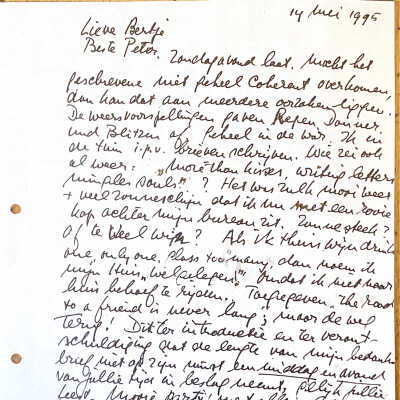 14 mei 1995
Lieve Bertje
Beste Peter. Zondagavond laat. Mocht het
geschrevene niet geheel coherent overkomen,
dan kan dat aan meerdere oorzaken liggen.
De weersvoorspellingen gaven Regen, Donner
und Blitzen af. Geheel in de war. Ik in
de tuin i.p.v. brieven schrijven. Wie zei ook
al weer: "More than kisses, writing letters
mingles souls"? Het was zulk mooi weer
+ veel zonneschijn dat ik nu met een rooie
kop achter mijn bureau zit. Zonnesteek?
Of te veel wijn? Als ik thuis wijn drink
one, only one, glass too many dan noem ik
mijn Huis "welgelegen" omdat ik niet naar
huis behoef te rijden. Toegegeven "The road
to a friend is never long; maar de weg
terug! Dit ter introductie en ter verant-
schuldiging dat de lengte van mijn bedank-
brief niet op zijn minst een middag en avond
van jullie tijd in beslag neemt,